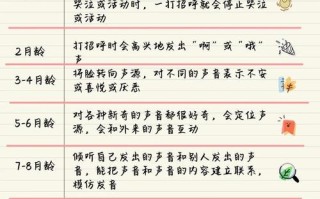 哭泣或活动时，一打招呼就会停止哭泣
或活动
2月龄
打招呼时会高兴地发出“啊”或“哦”
声
3-4月龄
扬脸转向声源，对不同的声音表示不安
或喜悦或厌恶
5-6月龄
对各种新奇的声音都很好奇，会定位声
源，会和外来的声音互动
7-8月龄
倾听自己发出的声音和别人发出的声
音，能把声音和声音的内容建立联系，
模仿发音